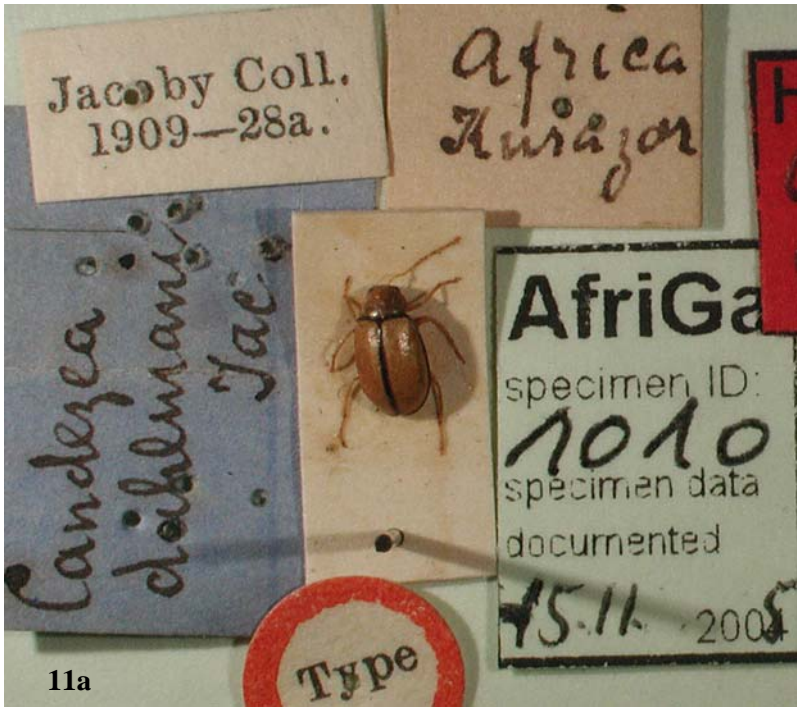 Jacoby Coll.
1909—28a.
Africa
Candezea
dahlmani
Jac
AfriGa
specimen ID:
1010
specimen data
documented
15.11. 2005
Type
H
11a